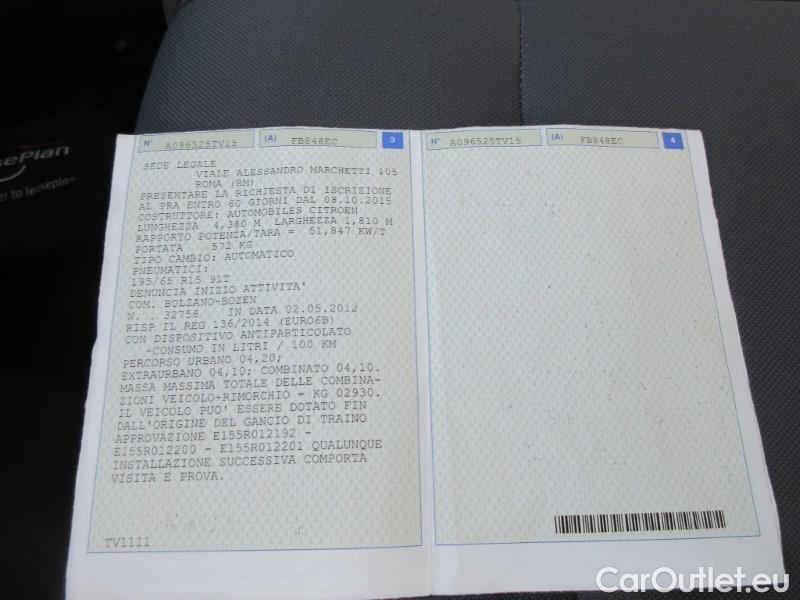 N° A096525TV15 (A) FB848EC 3
SEDE LEGALE
VIALE ALESSANDRO MARCHETTI 105
ROMA (RM)
PRESENTARE LA RICHIESTA DI ISCRIZIONE
AL PRA ENTRO 60 GIORNI DAL 08.10.2015
COSTRUTTORE: AUTOMOBILES CITROEN
LUNGHEZZA 4,380 M LARGHEZZA 1,810 M
RAPPORTO POTENZA/TARA = 51,847 KW/T
PORTATA 572 KG
TIPO CAMBIO: AUTOMATICO
PNEUMATICI:
195/65 R15 91T
DENUNCIA INIZIO ATTIVITA'
COM. BOLZANO-BOZEN
N. . 32756 IN DATA 02.05.2012
RISP IL REG 136/2014 (EURO6B)
CON DISPOSITIVO ANTIPARTICOLATO
-CONSUMO IN LITRI / 100 KM
PERCORSO URBANO 04,20;
EXTRAURBANO 04,10; COMBINATO 04,10.
MASSA MASSIMA TOTALE DELLE COMBINA-
ZIONI VEICOLO+RIMORCHIO = KG 02930.
IL VEICOLO PUO' ESSERE DOTATO FIN
DALL'ORIGINE DEL GANCIO DI TRAINO
APPROVAZIONE E155R012192 -
E155R012200 - E155R012201 QUALUNQUE
INSTALLAZIONE SUCCESSIVA COMPORTA
VISITA E PROVA.
TV1111
N° A096525TV15 (A) FB848EC 4
sePlan
er to leaseplan
CarOutlet.eu